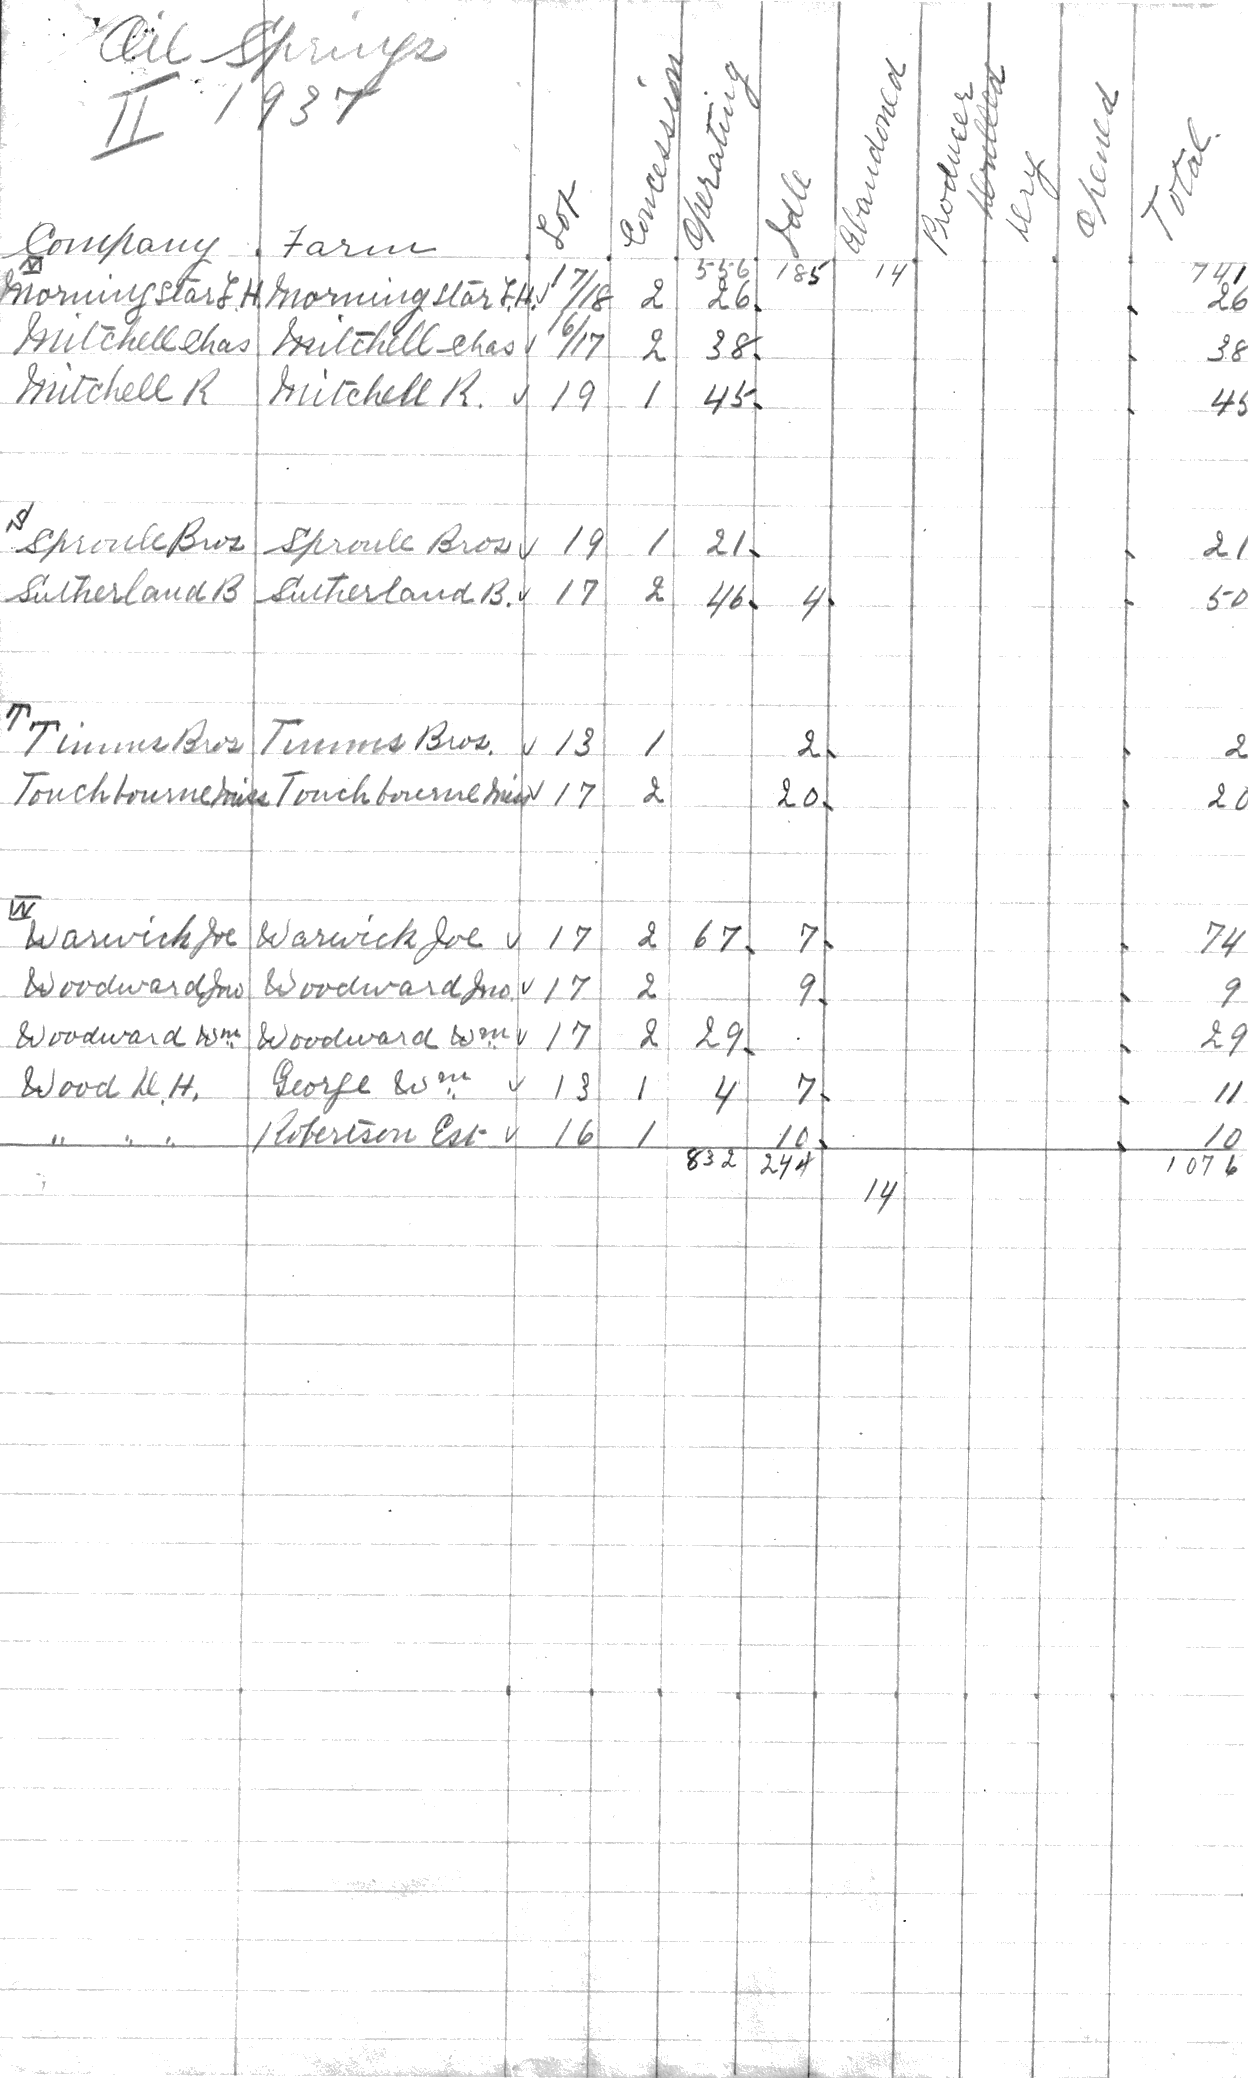 Oil Springs
II 1937
Company Farm Lot Concession Operating Idle Abandoned Producer Drilled Dery Opened Total.
556 185 14 741
M
Morningstar F.H. Morningstar F.H. √ 17/18 2 26 26
Mitchell Chas Mitchell Chas √ 16/17 2 38 38
Mitchell R Mitchell R. √ 19 1 45 45
S
Sproule Bros Sproule Bros √ 19 1 21 21
Sutherland B Sutherland B. √ 17 2 46 4 50
T
Timms Bros Timms Bros. √ 13 1 2 2
Touchbourne Miss Touchbourne Miss √ 17 2 20 20
W
Warwick Joe Warwick Joe √ 17 2 67 7 74
Woodward Jno Woodward Jno. √ 17 2 9 9
Woodward Wm Woodward Wm √ 17 2 29 29
Wood D.H. George Wm √ 13 1 4 7 11
" " " Robertson Est √ 16 1 10 10
832 244 1076
14